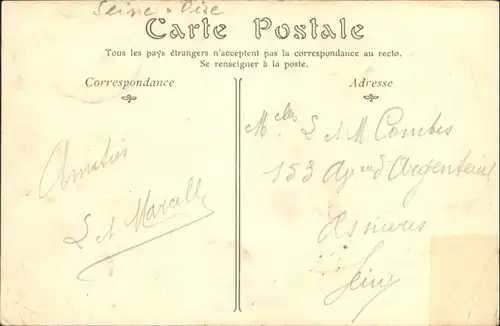 Seine & Oise
Carte Postale
Tous les pays étrangers n'acceptent pas la correspondance au recto.
Se renseigner à la poste.
Correspondance
Adresse
Amitiés
L et Marcelle
Melles L et M Combes
153 Av d'Argenteuil
Asnieres
Seine